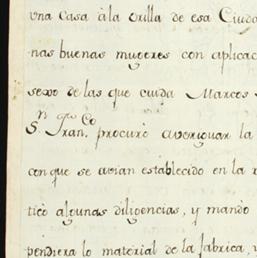 una casa à la orilla de esa Ciuda
nas buenas mugeres con aplicac
sexo de las que cuida Marcos
Sn. Fran.co procurò averiguar la
con que se avian establecido en la
tico algunas diligencias, y mando
pendiera lo material de la fabrica,